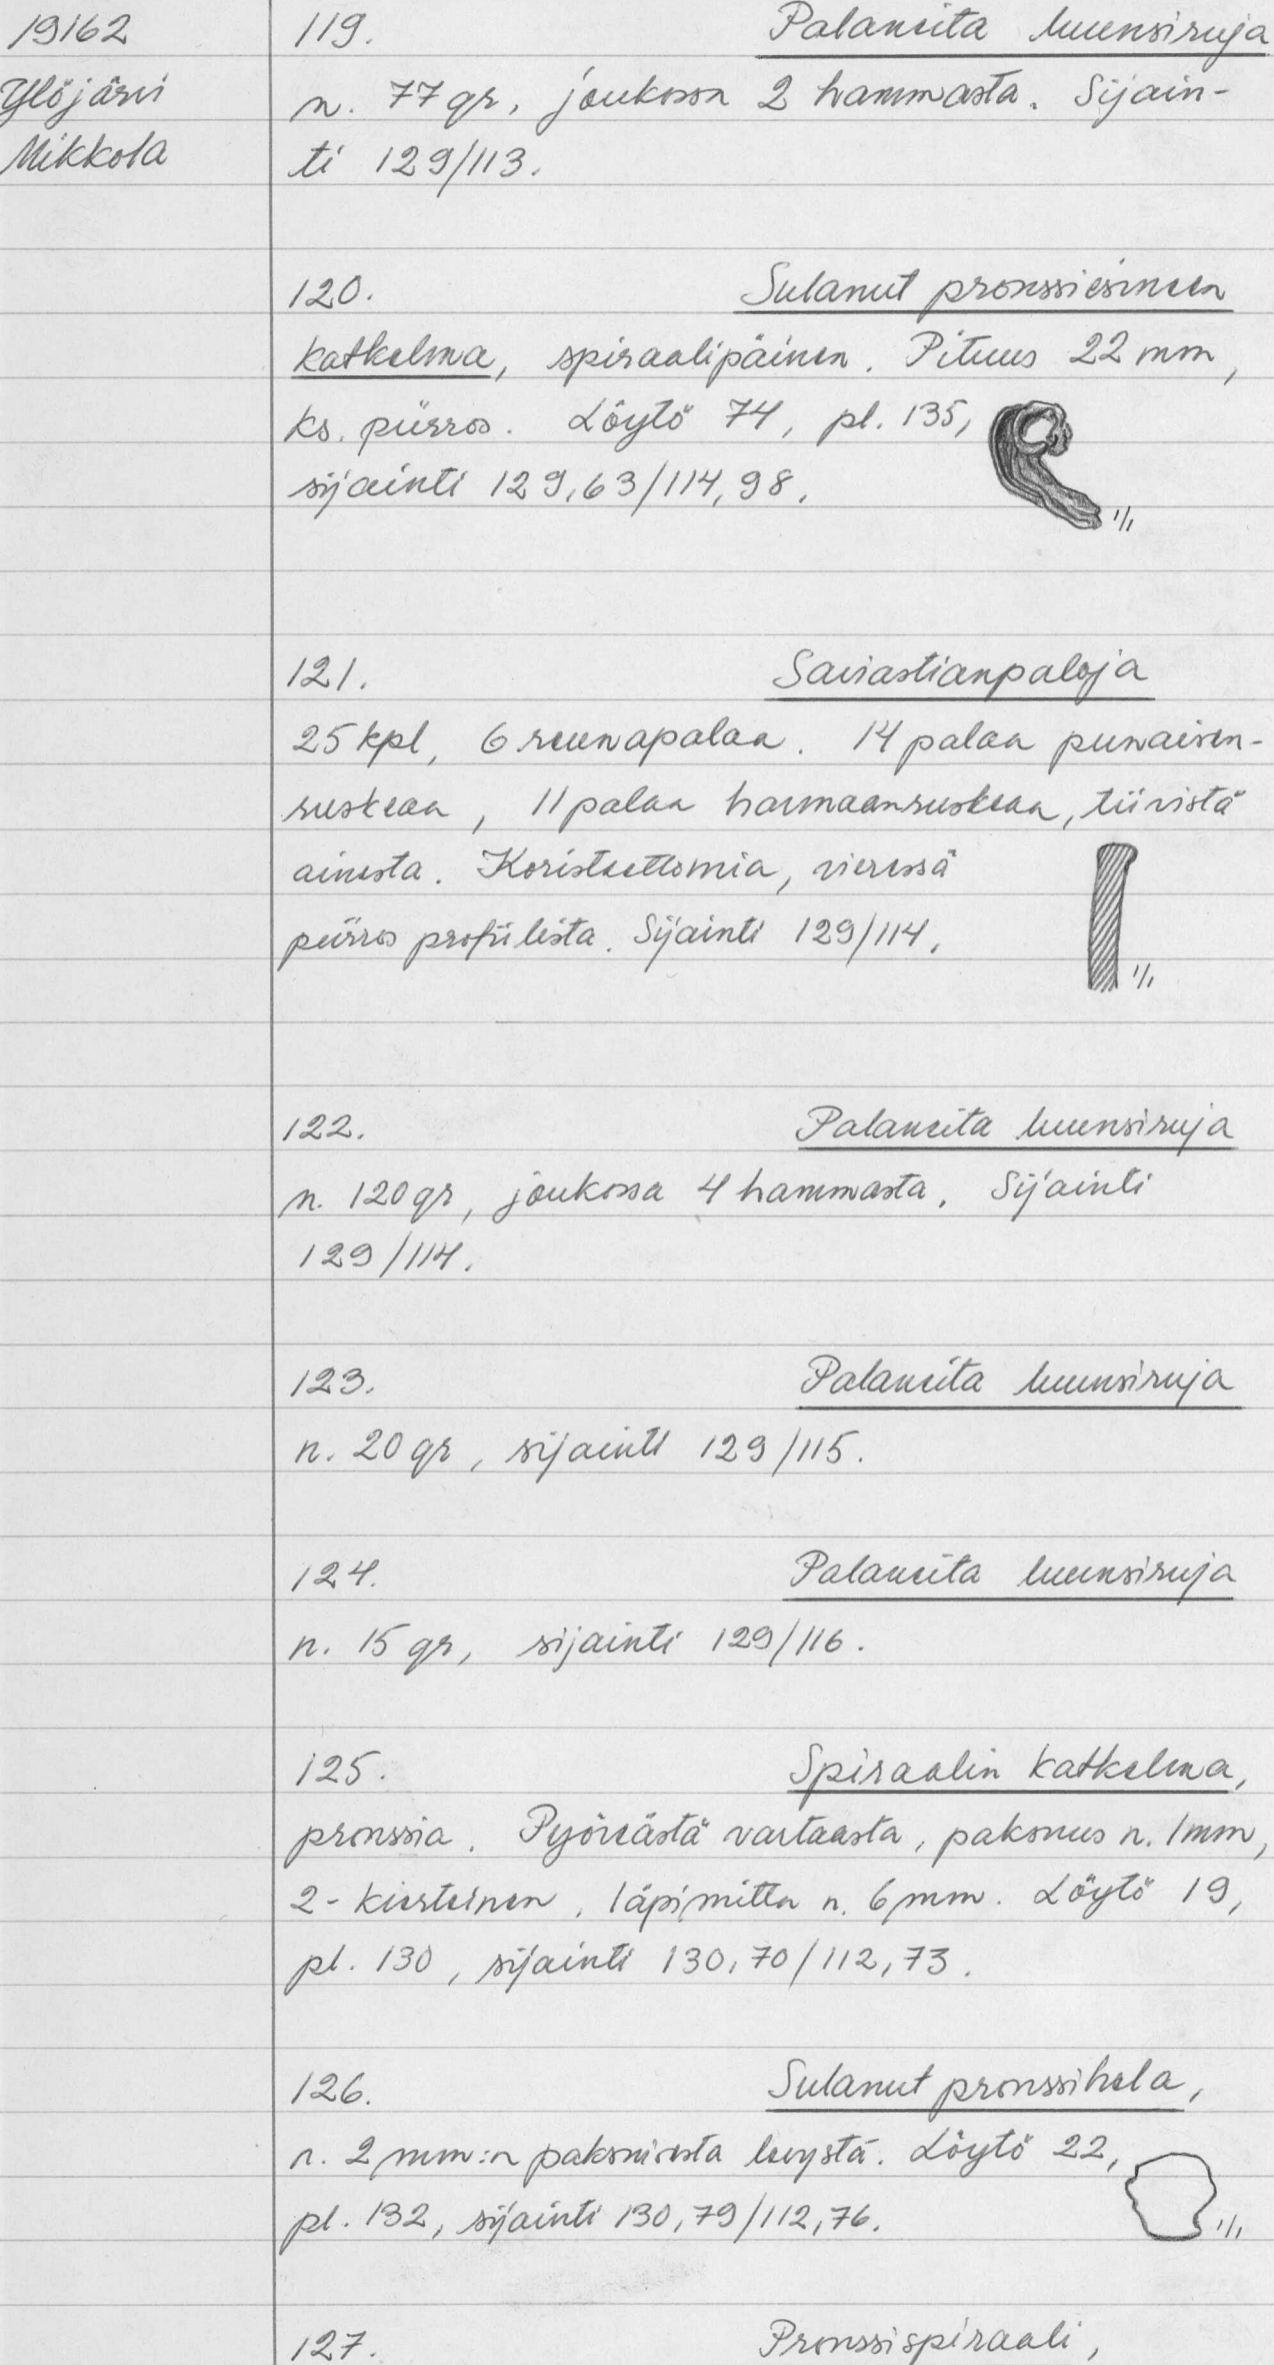 19162
Ylöjärvi
Mikkola
119. Palaneita luunsiruja
n. 77 gr, joukossa 2 hammasta. Sijain-
ti 129/113.
120. Sulanut pronssiesineen
katkelma, spiraalipäinen. Pituus 22 mm,
ks. piirros. Löytö 74, pl. 135,
sijainti 129,63/114,98.
1/1
121. Saviastianpaloja
25 kpl, 6 reunapalaa. 14 palaa punaisen-
ruskeaa, 11 palaa harmaanruskeaa, tiivistä
ainesta. Koristeettomia, vieressä
piirros profiilista. Sijainti 129/114.
1/1
122. Palaneita luunsiruja
n. 120 gr, joukossa 4 hammasta. Sijainti
129/114.
123. Palaneita luunsiruja
n. 20 gr, sijainti 129/115.
124. Palaneita luunsiruja
n. 15 gr, sijainti 129/116.
125. Spiraalin katkelma,
pronssia. Pyöreästä vartaasta, paksuus n. 1 mm,
2-kierteinen, läpimitta n. 6 mm. Löytö 19,
pl. 130, sijainti 130,70/112,73.
126. Sulanut pronssihela,
n. 2 mm:n paksuisesta levystä. Löytö 22,
pl. 132, sijainti 130,79/112,76.
1/1
127. Pronssispiraali,